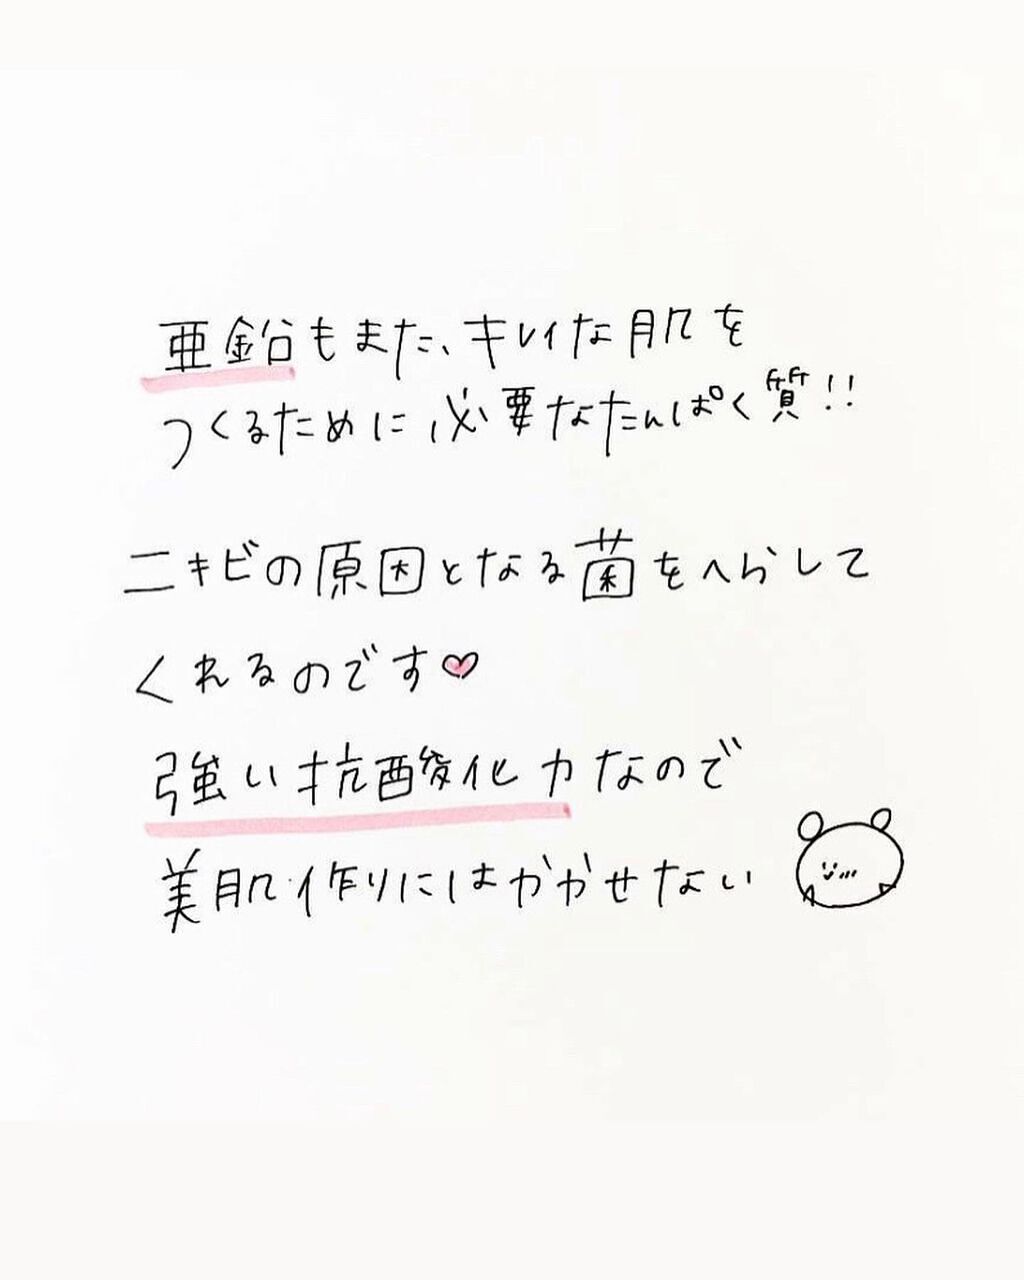 亜鉛もまた、キレイな肌を
つくるために必要なたんぱく質!!
ニキビの原因となる菌をへらして
くれるのです♡
強い抗酸化力なので
美肌作りにはかかせない